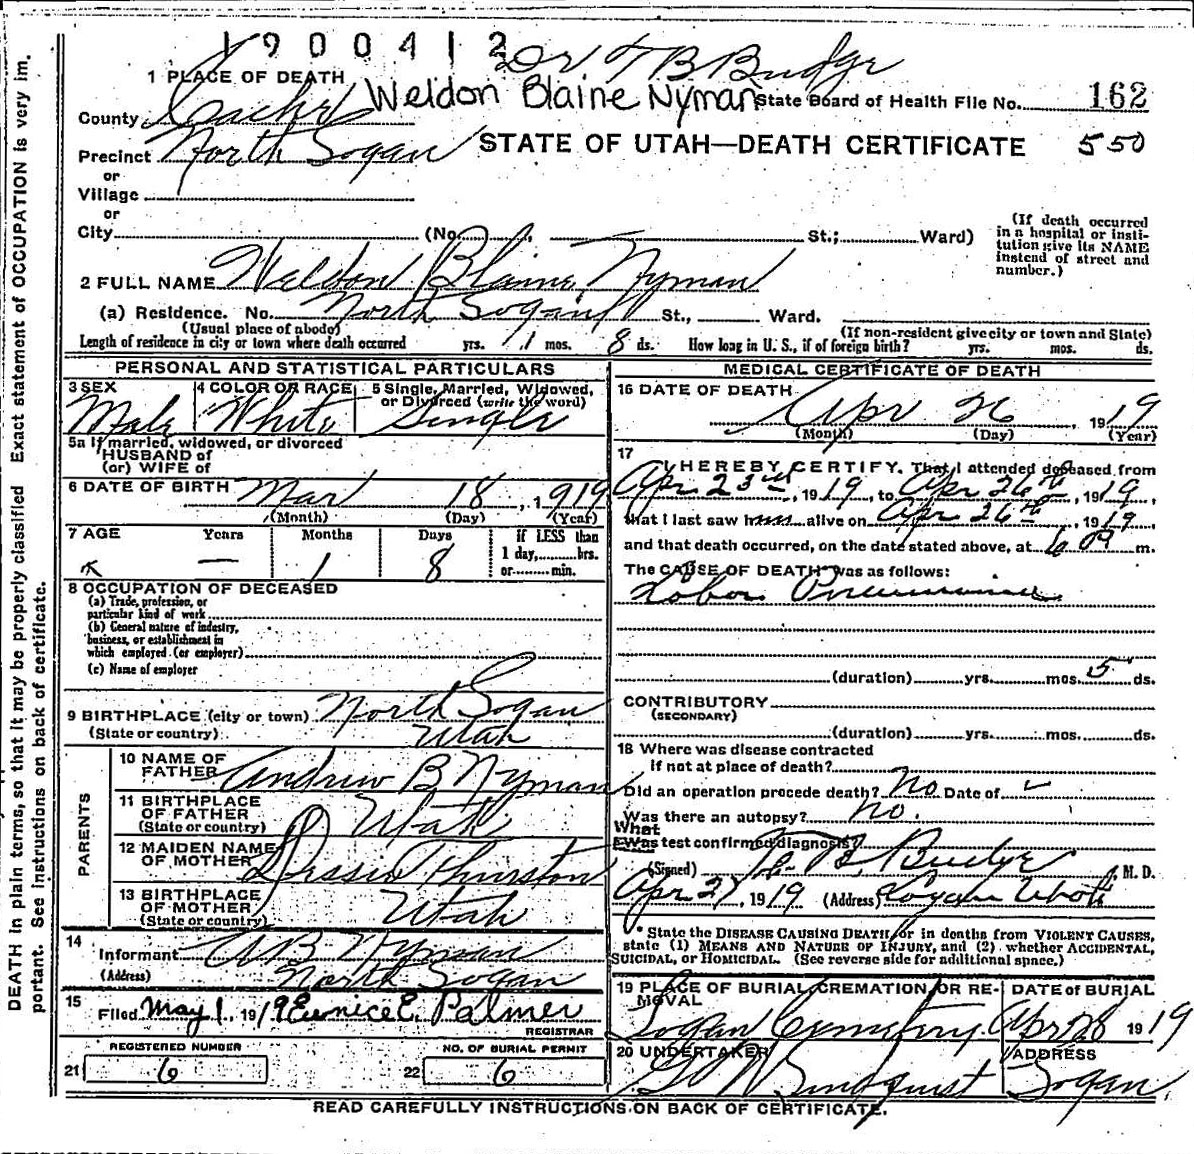 1900412
Dr T B Budge
1 PLACE OF DEATH Weldon Blaine Nyman State Board of Health File No. 162
County Cache
Precinct North Logan STATE OF UTAH—DEATH CERTIFICATE 550
or
Village
or
City (No. St.; Ward)
(If death occurred in a hospital or institution give its NAME instead of street and number.)
2 FULL NAME Weldon Blaine Nyman
(a) Residence. No. North Logan St., Ward.
(Usual place of abode) (If non-resident give city or town and State)
Length of residence in city or town where death occurred yrs. 1 mos. 8 ds. How long in U. S., if of foreign birth? yrs. mos. ds.
PERSONAL AND STATISTICAL PARTICULARS
3 SEX Male
4 COLOR OR RACE White
5 Single, Married, Widowed, or Divorced (write the word) Single
5a If married, widowed, or divorced
HUSBAND of
(or) WIFE of
6 DATE OF BIRTH Mar 18, 1919
(Month) (Day) (Year)
7 AGE Years — Months 1 Days 8
If LESS than
1 day, hrs.
or min.
8 OCCUPATION OF DECEASED
(a) Trade, profession, or
particular kind of work
(b) General nature of industry,
business, or establishment in
which employed (or employer)
(c) Name of employer
9 BIRTHPLACE (city or town) North Logan
(State or country) Utah
PARENTS
10 NAME OF FATHER Andrew B Nyman
11 BIRTHPLACE OF FATHER (State or country) Utah
12 MAIDEN NAME OF MOTHER Dessie Thurston
13 BIRTHPLACE OF MOTHER (State or country) Utah
14 Informant A B Nyman
(Address) North Logan
15 Filed May 1, 1919 Eunice E. Palmer
REGISTRAR
REGISTERED NUMBER
21 6
NO. OF BURIAL PERMIT
22 6
MEDICAL CERTIFICATE OF DEATH
16 DATE OF DEATH
Apr 26, 1919
(Month) (Day) (Year)
17 I HEREBY CERTIFY. That I attended deceased from
Apr 23rd, 1919, to Apr 26th, 1919,
that I last saw him alive on Apr 26th, 1919,
and that death occurred, on the date stated above, at 6 m.
The CAUSE OF DEATH* was as follows:
Lobar Pneumonia
(duration) yrs. mos. 5 ds.
CONTRIBUTORY
(SECONDARY)
(duration) yrs. mos. ds.
18 Where was disease contracted
if not at place of death?
Did an operation precede death? No Date of
Was there an autopsy? No.
What test confirmed diagnosis?
(Signed) T. B. Budge, M. D.
Apr 27, 1919 (Address) Logan Utah
* State the DISEASE CAUSING DEATH, or in deaths from VIOLENT CAUSES,
state (1) MEANS AND NATURE OF INJURY, and (2) whether ACCIDENTAL,
SUICIDAL, or HOMICIDAL. (See reverse side for additional space.)
19 PLACE OF BURIAL, CREMATION, OR REMOVAL Logan Cemetery
DATE of BURIAL Apr 28 1919
20 UNDERTAKER Lindquist
ADDRESS Logan
READ CAREFULLY INSTRUCTIONS ON BACK OF CERTIFICATE.
DEATH in plain terms, so that it may be properly classified. Exact statement of OCCUPATION is very im-
portant. See instructions on back of certificate.